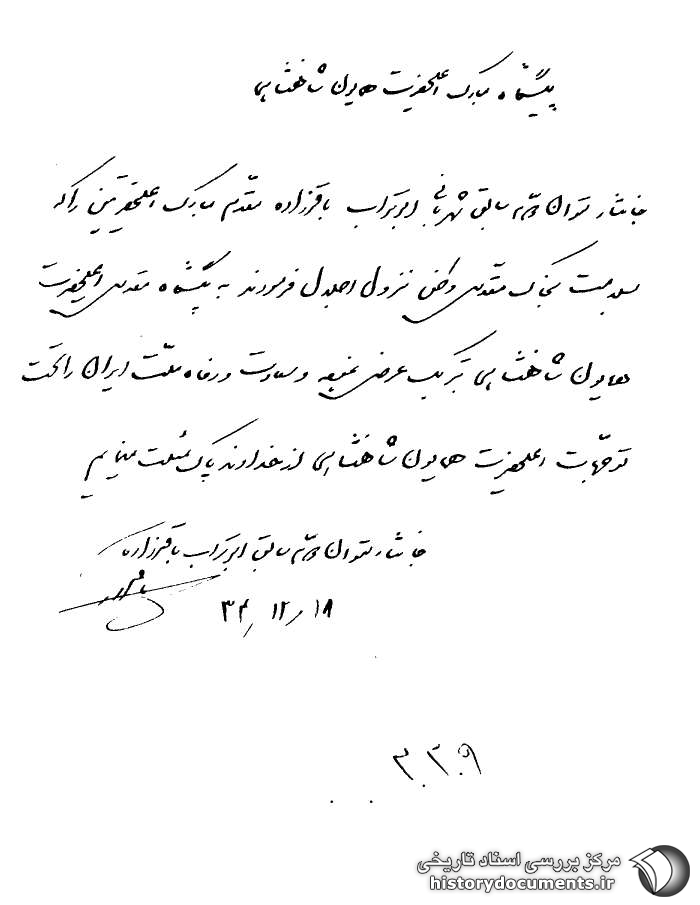 پیشگاه مبارک اعلیحضرت همایون شاهنشاهی
جانثار ستوان دوم سابق شهربانی ابوتراب باقرزاده مقدم مبارک اعلیحضرتین را که
بسلامت بخاک مقدس وطن نزول اجلال فرمودند به پیشگاه مقدس اعلیحضرت
همایون شاهنشاهی تبریک عرض نموده و سعادت و رفاه ملت ایران را تحت
توجهات اعلیحضرت همایون شاهنشاهی از خداوند پاک مسئلت مینمایم
جانثار ستوان دوم سابق ابوتراب باقرزاده
۳۴٫۱۲٫۱۸
مرکز بررسی اسناد تاریخی
historydocuments.ir